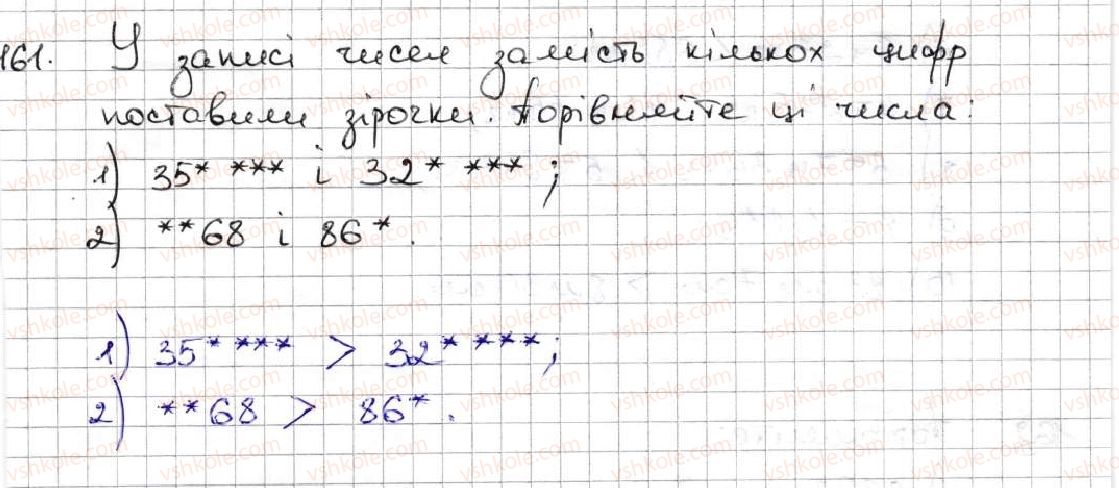 161. У записі чисел замість кількох цифр
поставили зірочки. Порівняйте ці числа:
1) 35* *** і 32* ***;
2) **68 і 86*.
1) 35* *** > 32* ***;
2) **68 > 86*.